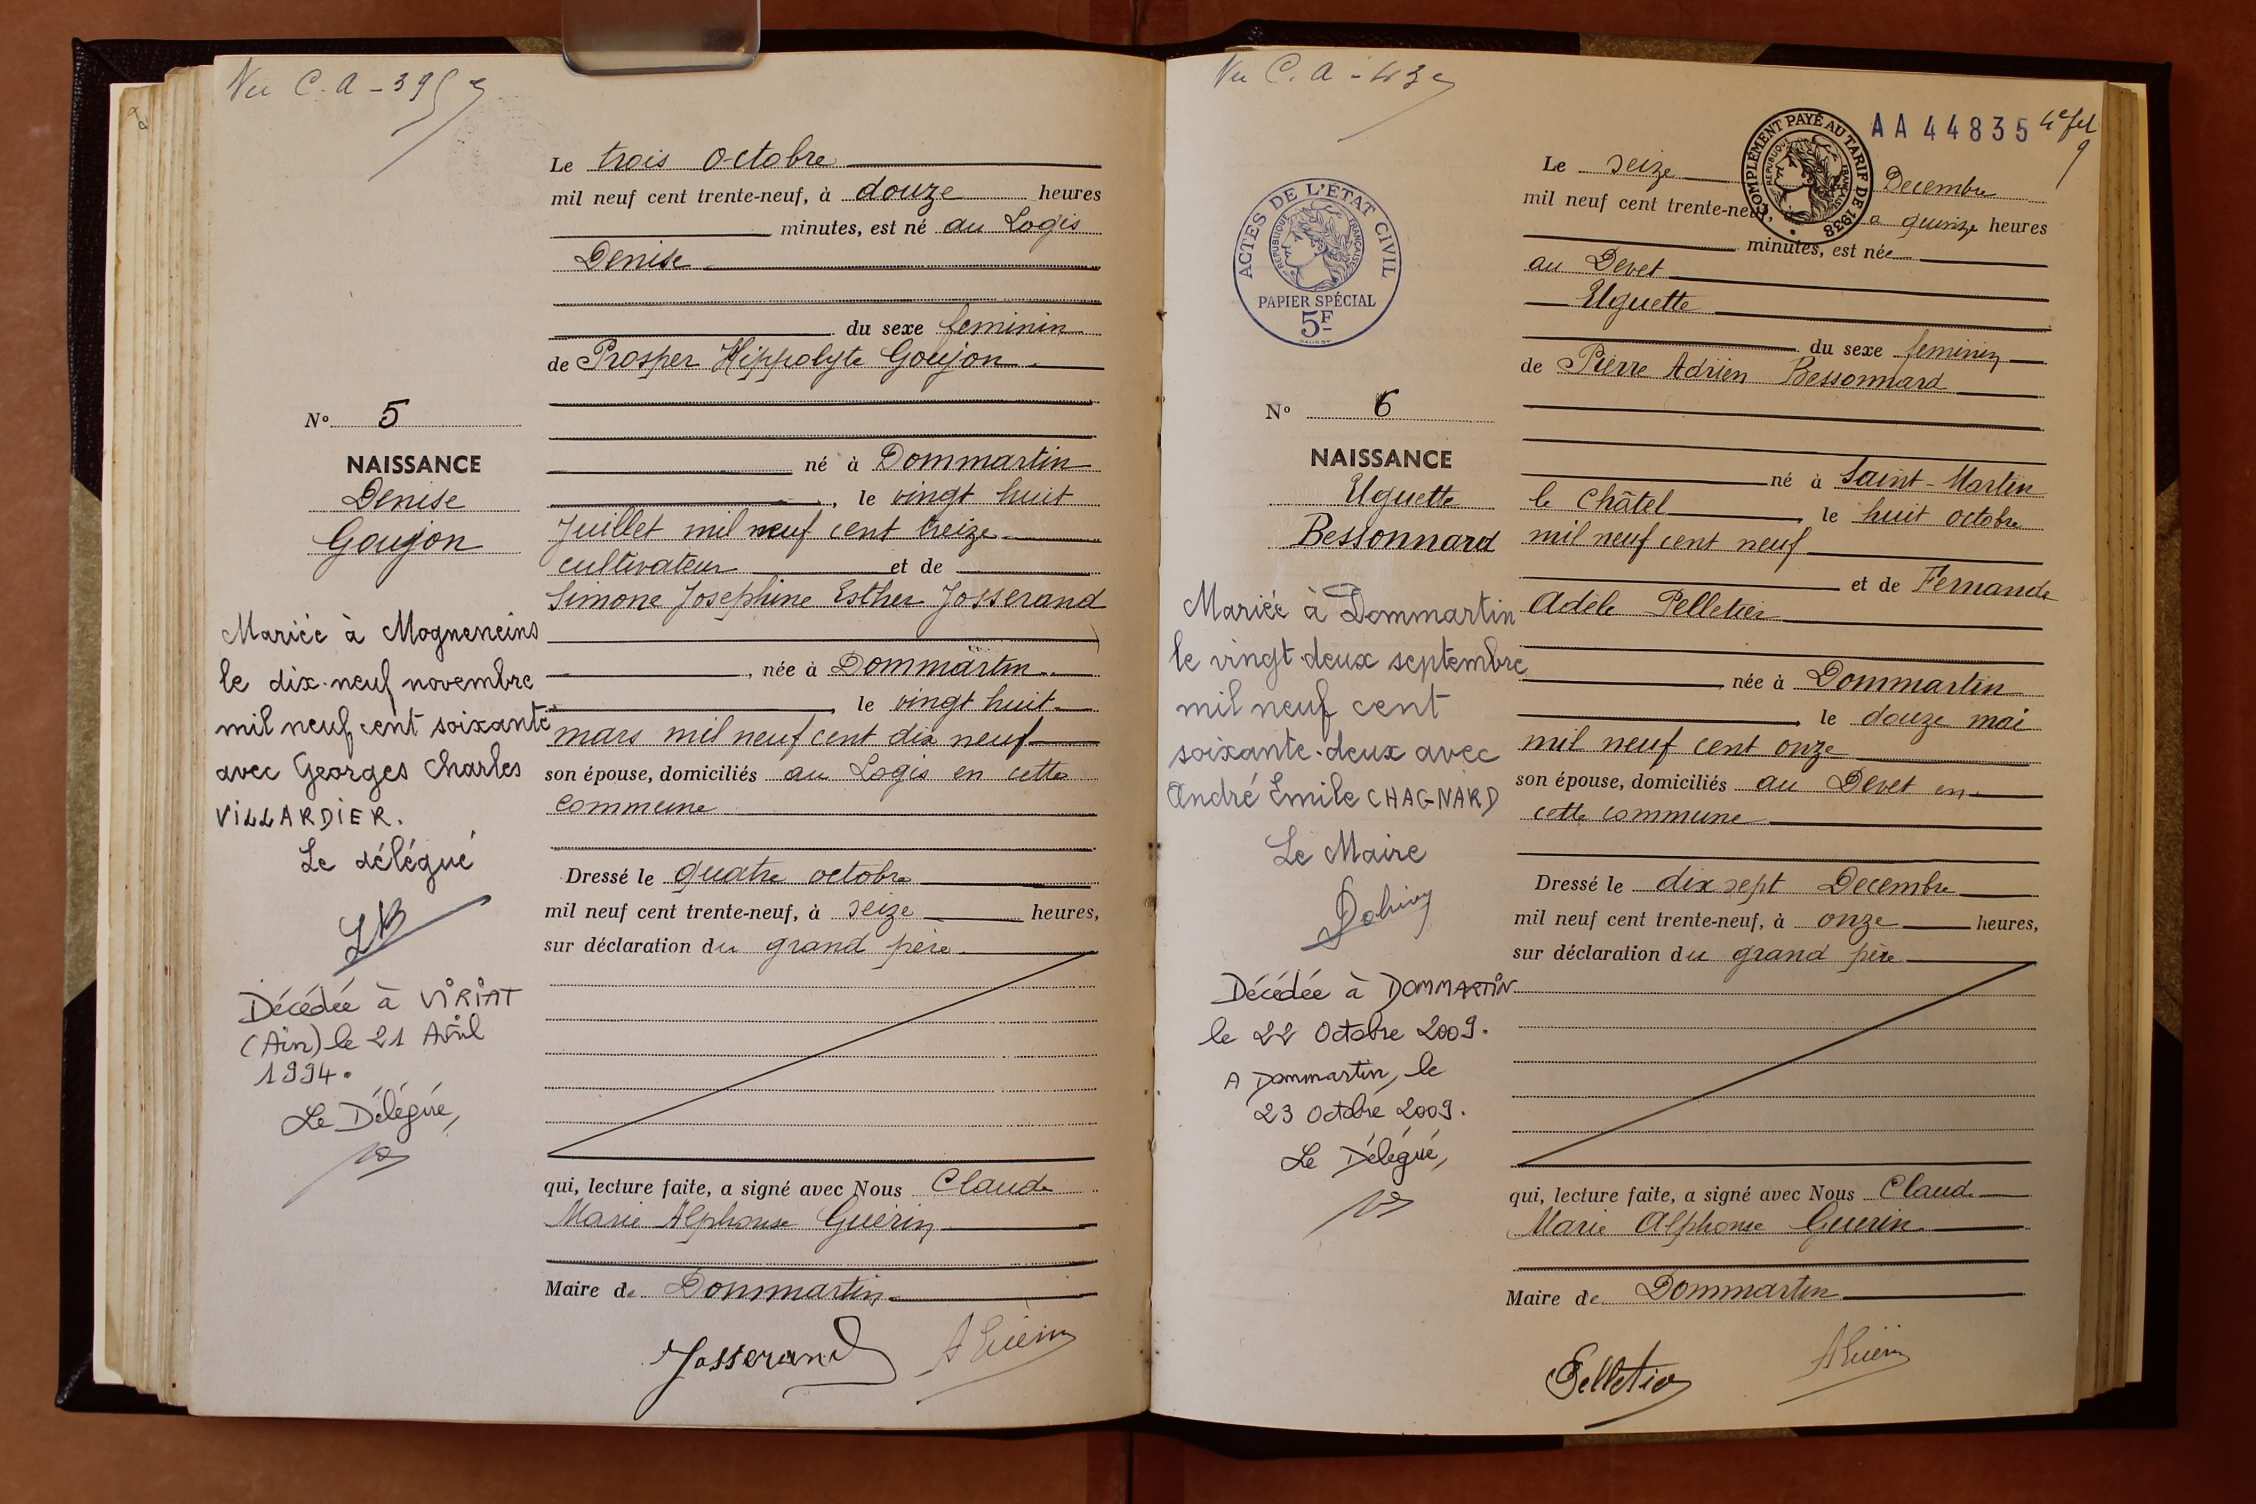 Vu C.A - 39
Le trois Octobre
mil neuf cent trente-neuf, à douze heures
minutes, est né au Logis
Denise
du sexe feminin
de Prosper Hippolyte Goujon
N° 5
NAISSANCE
Denise
Goujon
né à Dommartin
, le vingt huit
Juillet mil neuf cent treize
cultivateur et de
Simone Josephine Esther Josserand
, née à Dommartin
, le vingt huit
mars mil neuf cent dix neuf
son épouse, domiciliés au Logis en cette
commune
Dressé le quatre octobre
mil neuf cent trente-neuf, à seize heures,
sur déclaration du grand père
qui, lecture faite, a signé avec Nous Claude
Marie Alphonse Guérin
Maire de Dommartin
Josserand A Guérin
Mariée à Mogneneins
le dix-neuf novembre
mil neuf cent soixante
avec Georges Charles
VILLARDIER.
Le délégué
Décédée à VIRIAT
(Ain) le 21 Avril
1994.
Le Délégué,
Vu C.A - 43
AA 44835
COMPLÉMENT PAYÉ AU TARIF DE 1938
RÉPUBLIQUE FRANÇAISE
ACTES DE L'ETAT CIVIL
RÉPUBLIQUE FRANÇAISE
PAPIER SPÉCIAL
5F
Le seize Decembre
mil neuf cent trente-neuf, a quinze heures
minutes, est née
au Devet
Uguette
du sexe feminin
de Pierre Adrien Bessonnard
N° 6
NAISSANCE
Uguette
Bessonnard
né à Saint-Martin
le Châtel, le huit octobre
mil neuf cent neuf
et de Fernande
Adèle Pelletier
née à Dommartin
, le douze mai
mil neuf cent onze
son épouse, domiciliés au Devet en
cette commune
Dressé le dix sept Decembre
mil neuf cent trente-neuf, à onze heures,
sur déclaration du grand père
qui, lecture faite, a signé avec Nous Claude
Marie Alphonse Guerin
Maire de Dommartin
Pelletier A Guérin
Mariée à Dommartin
le vingt-deux septembre
mil neuf cent
soixante-deux avec
André Emile CHAGNARD
Le Maire
Décédée à DOMMARTIN
le 22 Octobre 2009.
A Dommartin, le
23 Octobre 2009.
Le Délégué,